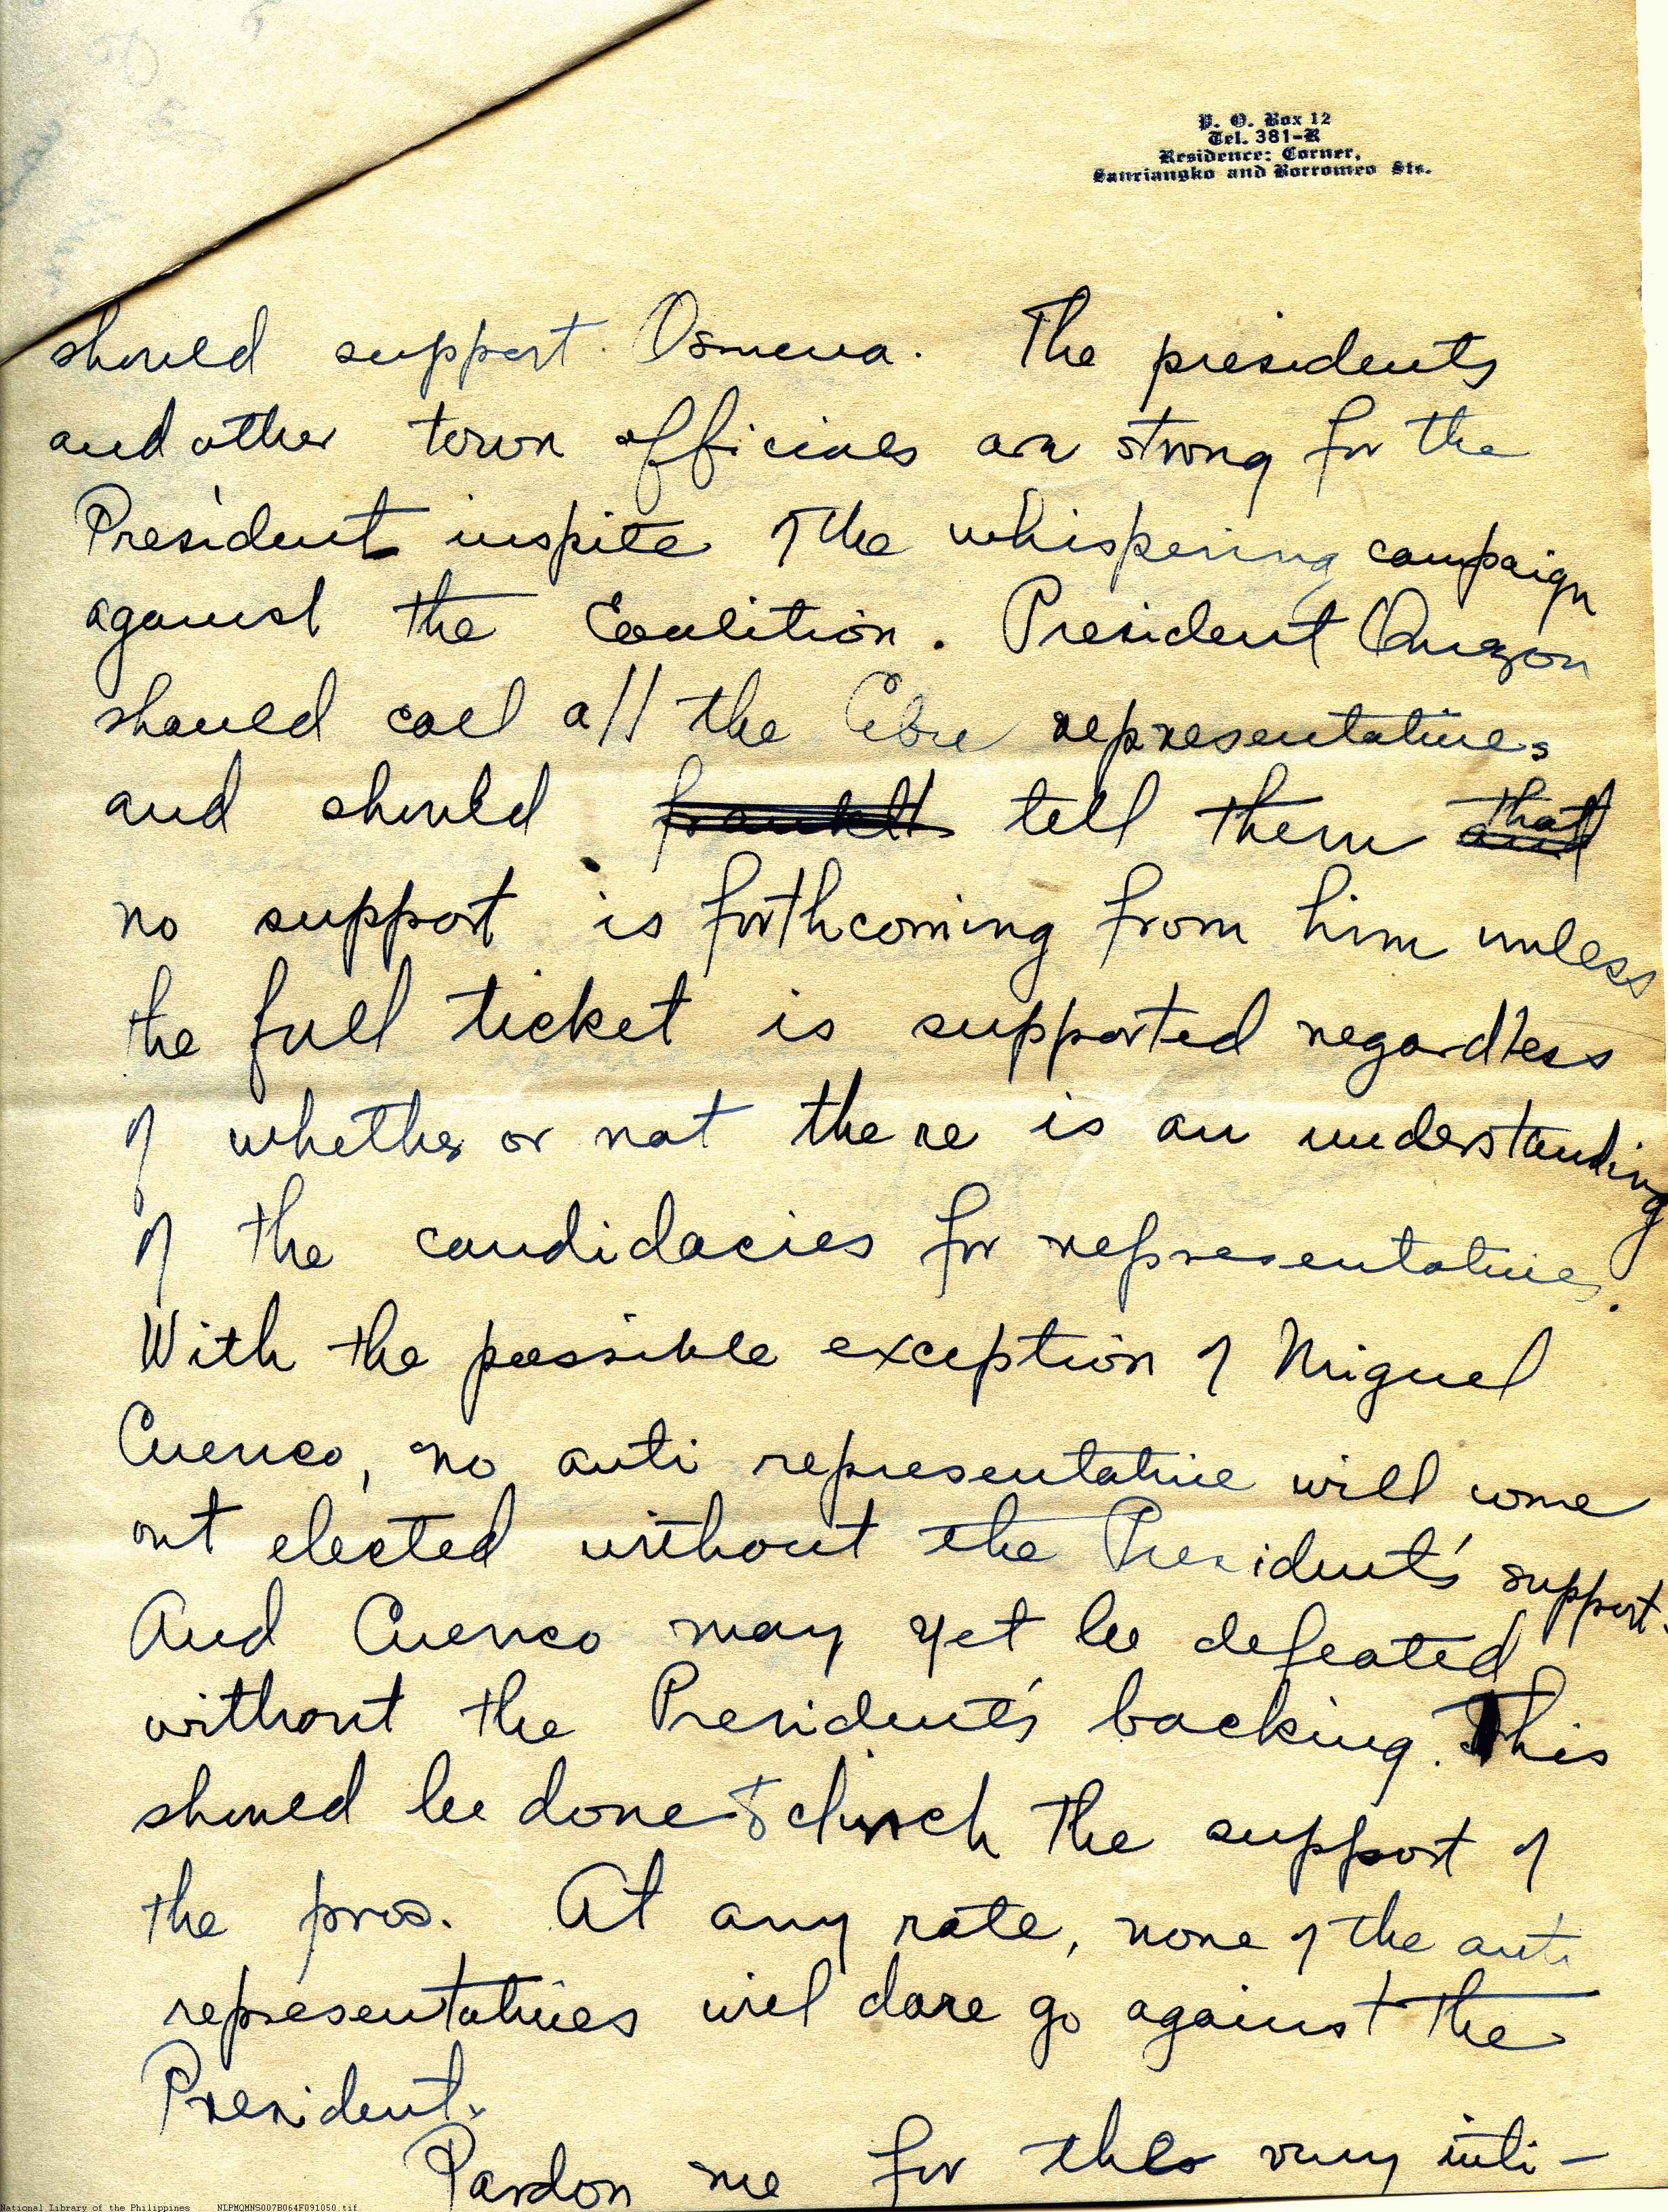 P. O. Box 12
Tel. 381-R
Residence: Corner,
Sanciangko and Borromeo Sts.
should support Osmena. The presidents
and other town officials are strong for the
President inspite of the whispering campaign
against the Coalition. President Quezon
should call all the Cebu representatives
and should tell them that
no support is forthcoming from him unless
the full ticket is supported regardless
of whether or not there is an understanding
of the candidacies for representatives.
With the possible exception of Miguel
Cuenco, no anti representative will come
out elected without the President's support.
And Cuenco may yet be defeated
without the President's backing. This
should be done to clinch the support of
the pros. At any rate, none of the anti
representatives will dare go against the
President.
Pardon me for this very inti-
National Library of the Philippines NLPMQMNS007B064F091050.tif